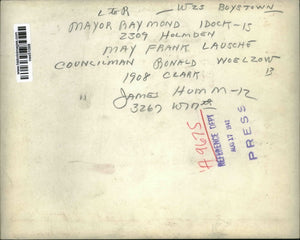 L to R — W25 BOYSTOWN
MAYOR RAYMOND IDOCK-15
2309 HOLMDEN
MAY FRANK LAUSCHE
COUNCILMAN RONALD WOELZOW
1908 CLARK 13
JAMES HUMM-12
3267 W 17th
A 9675
REFERENCE DEPT
AUG 17 1942
PRESS